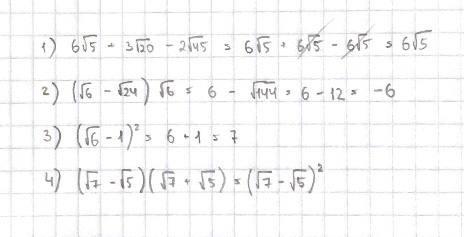 1) 6√5 + 3√20 - 2√45 = 6√5 + 6√5 - 6√5 = 6√5
2) (√6 - √24) √6 = 6 - √144 = 6 - 12 = -6
3) (√6 - 1)² = 6 + 1 = 7
4) (√7 - √5)(√7 + √5) = (√7 - √5)²